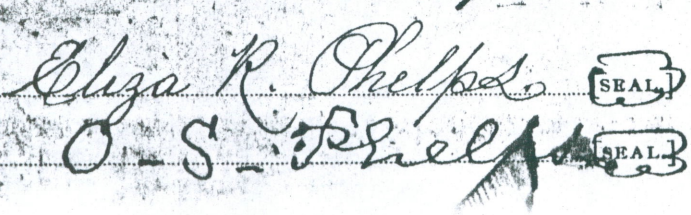 Eliza R. Phelps. [SEAL.]
O - S - Phelps [SEAL.]